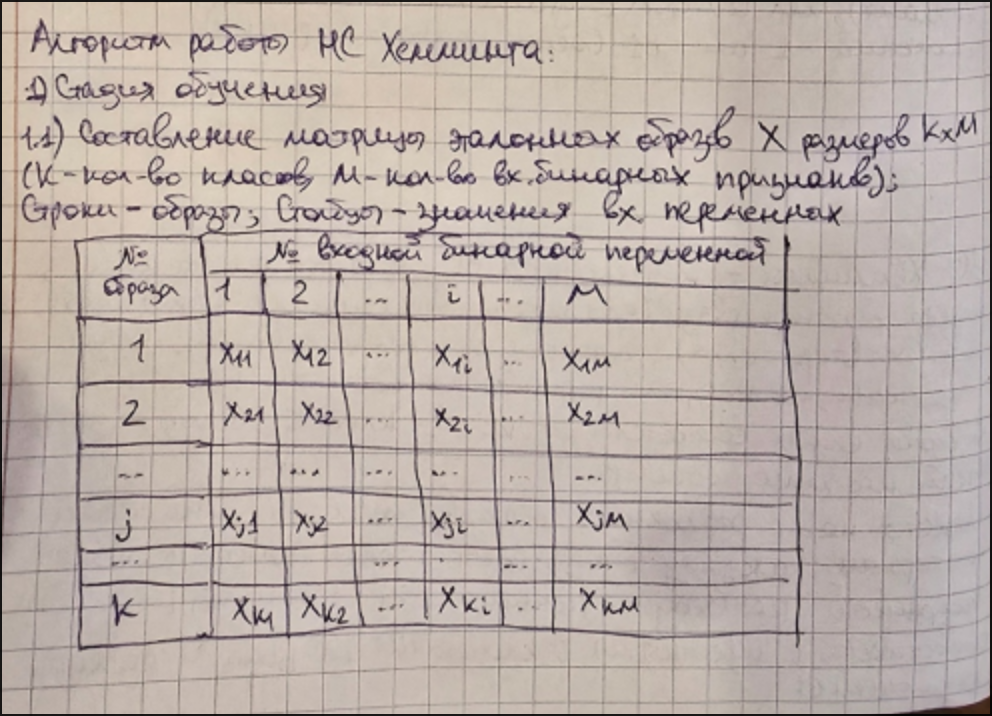 Алгоритм работы НС Хемминга:
1) Стадия обучения
1.1) Составление матрицы эталонных образов X размеров K×M
(K-кол-во класов, M-кол-во вх. бинарных признаков);
Строки - образы; Столбцы - значения вх. переменных
№ образа № входной бинарной переменной
1 2 ... i ... M
1 X11 X12 ... X1i ... X1M
2 X21 X22 ... X2i ... X2M
... ... ... ... ... ... ...
j Xj1 Xj2 ... Xji ... XjM
... ... . ... ...
K XK1 XK2 ... XKi ... XKM